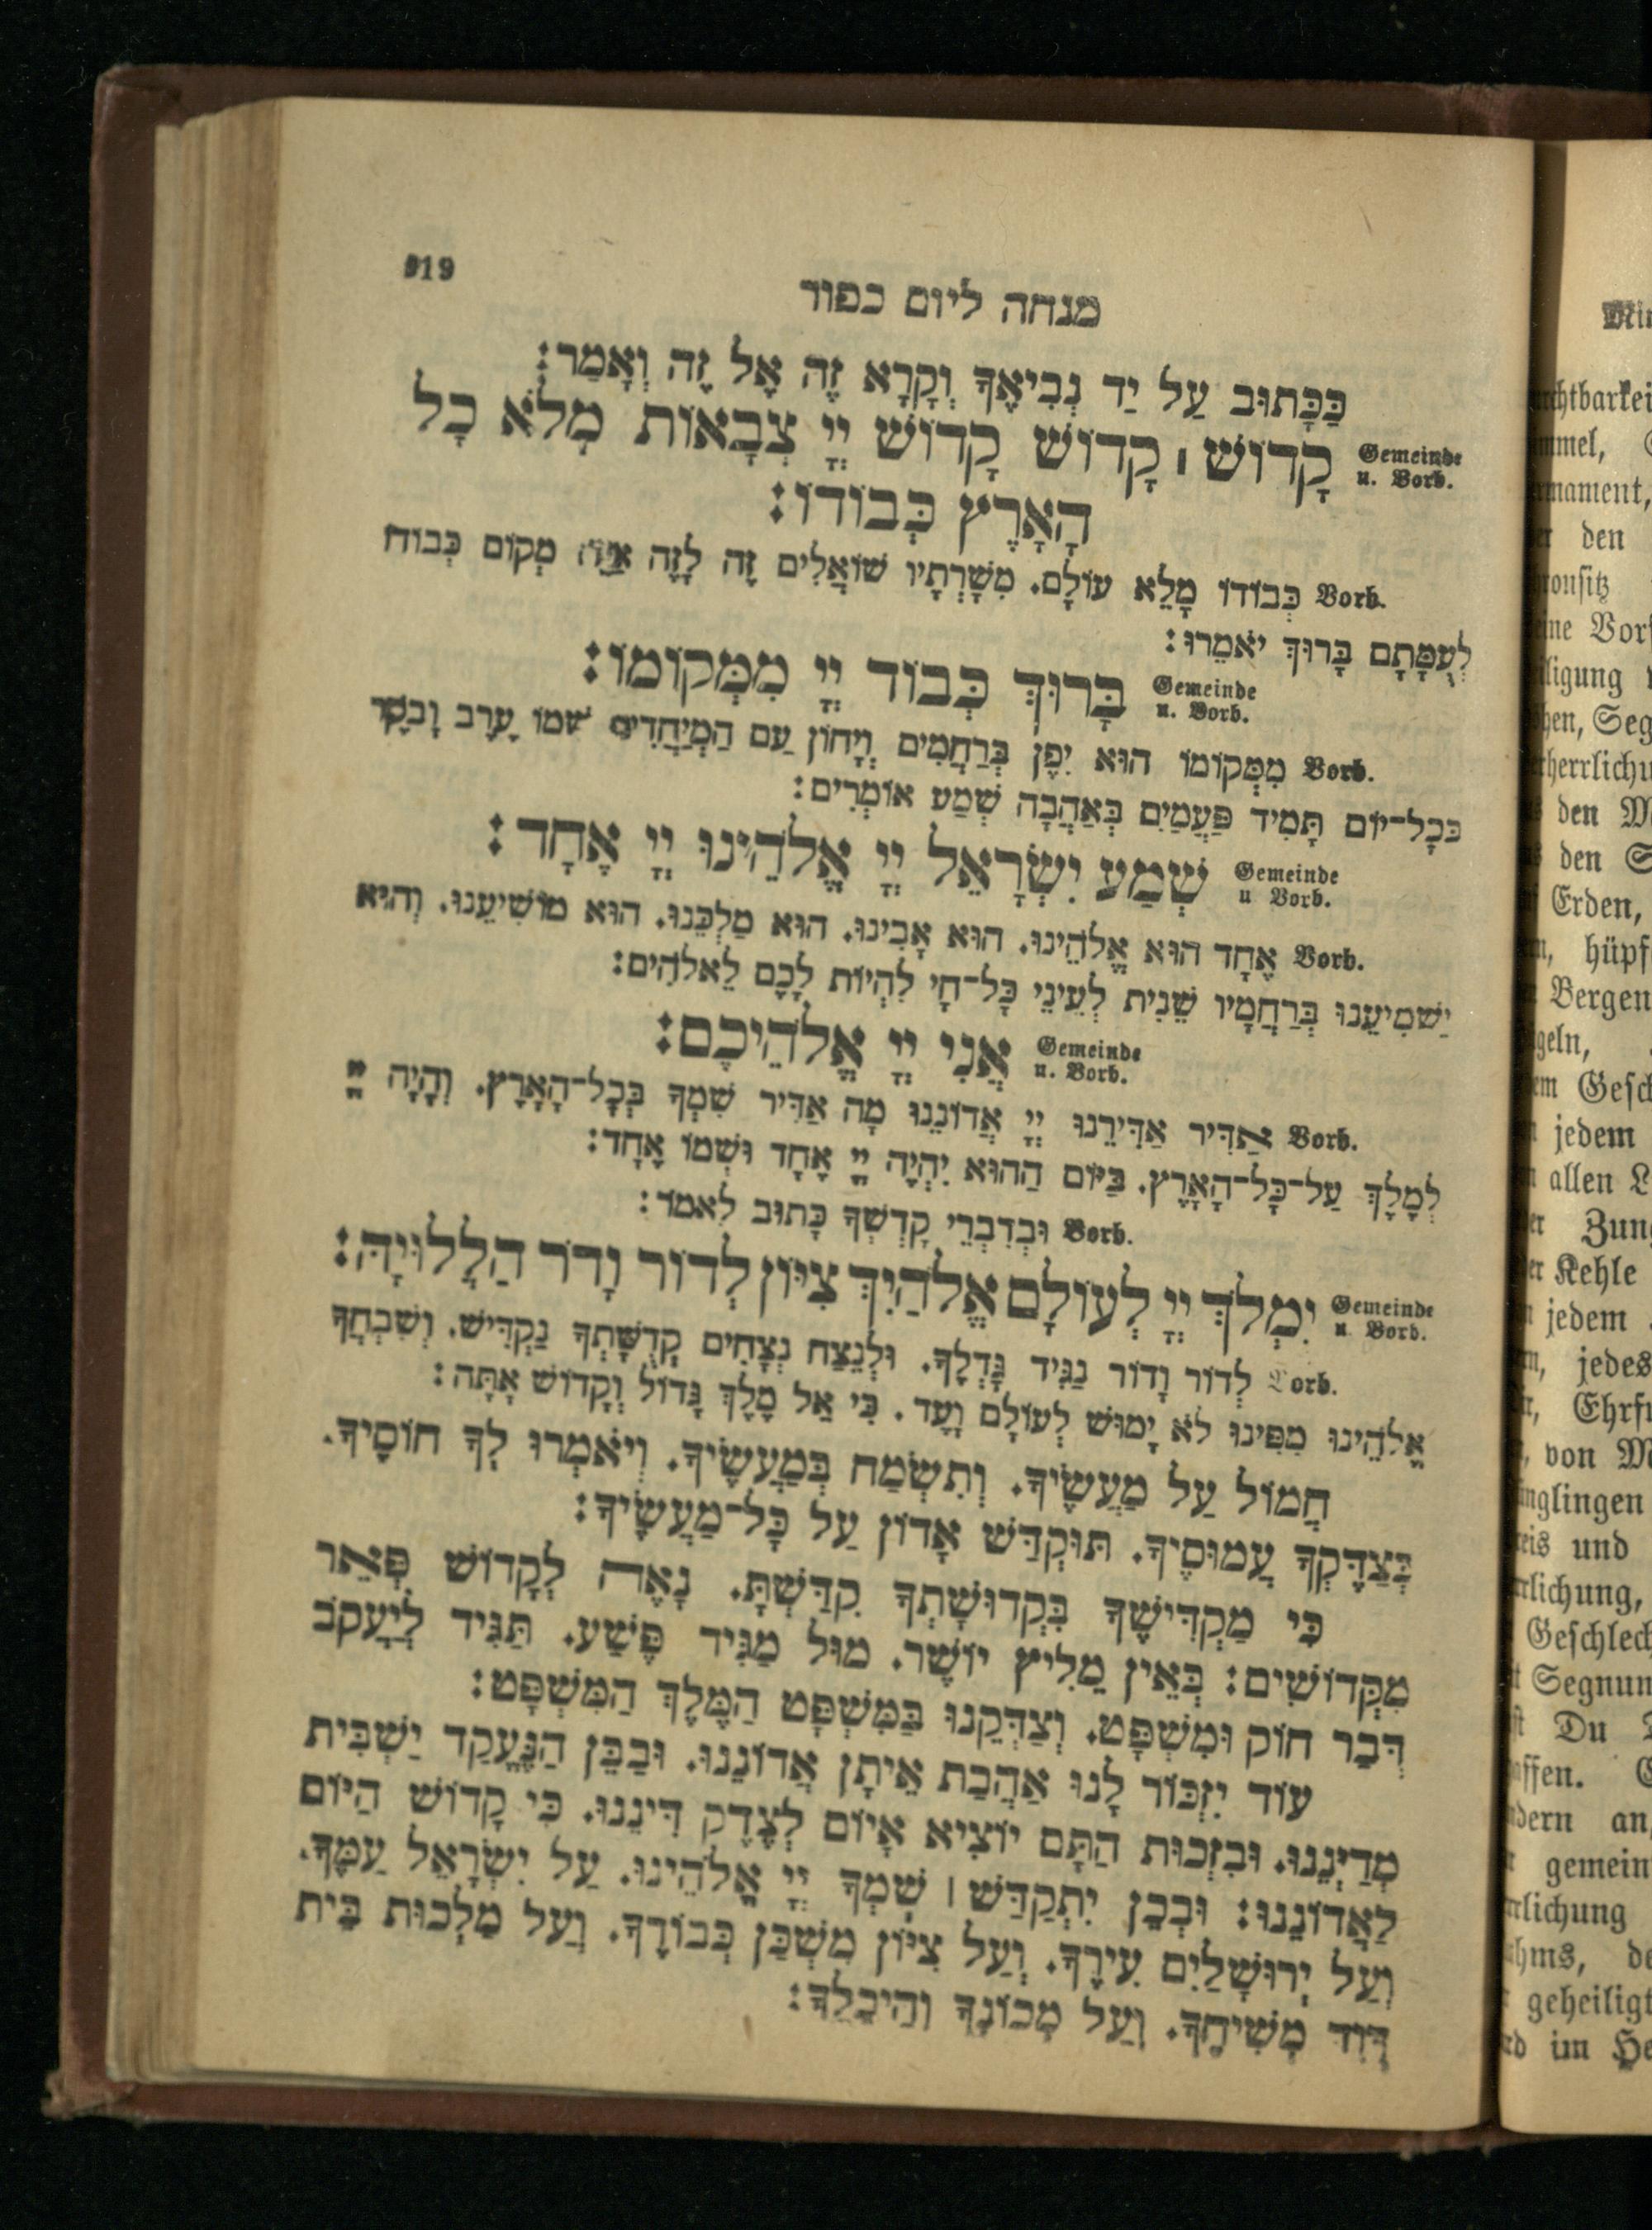 919
מנחה ליום כפור
כַּכָּתוּב עַל יַד נְבִיאֶךָ וְקָרָא זֶה אֶל זֶה וְאָמַר:
Gemeinde u. Vorb. קָדוֹשׁ ׀ קָדוֹשׁ קָדוֹשׁ יְיָ צְבָאוֹת מְלֹא כָל
הָאָרֶץ כְּבוֹדוֹ:
Vorb. כְּבוֹדוֹ מָלֵא עוֹלָם. מְשָׁרְתָיו שׁוֹאֲלִים זֶה לָזֶה אַיֵּה מְקוֹם כְּבוֹדוֹ
לְעֻמָּתָם בָּרוּךְ יֹאמֵרוּ:
Gemeinde u. Vorb. בָּרוּךְ כְּבוֹד יְיָ מִמְּקוֹמוֹ:
Vorb. מִמְּקוֹמוֹ הוּא יִפֶן בְּרַחֲמִים וְיָחוֹן עַם הַמְיַחֲדִים שְׁמוֹ עֶרֶב וָבֹקֶר
בְּכָל־יוֹם תָּמִיד פַּעֲמַיִם בְּאַהֲבָה שְׁמַע אוֹמְרִים:
Gemeinde u Vorb. שְׁמַע יִשְׂרָאֵל יְיָ אֱלֹהֵינוּ יְיָ אֶחָד:
Vorb. אֶחָד הוּא אֱלֹהֵינוּ. הוּא אָבִינוּ. הוּא מַלְכֵּנוּ. הוּא מוֹשִׁיעֵנוּ. וְהוּא
יַשְׁמִיעֵנוּ בְּרַחֲמָיו שֵׁנִית לְעֵינֵי כָּל־חָי לִהְיוֹת לָכֶם לֵאלֹהִים:
Gemeinde u. Vorb. אֲנִי יְיָ אֱלֹהֵיכֶם:
Vorb. אַדִּיר אַדִּירֵנוּ יְיָ אֲדוֹנֵנוּ מָה אַדִּיר שִׁמְךָ בְּכָל־הָאָרֶץ. וְהָיָה יְיָ
לְמֶלֶךְ עַל־כָּל־הָאָרֶץ. בַּיּוֹם הַהוּא יִהְיֶה יְיָ אֶחָד וּשְׁמוֹ אֶחָד:
Vorb. וּבְדִבְרֵי קָדְשְׁךָ כָּתוּב לֵאמֹר:
Gemeinde u Vorb. יִמְלֹךְ יְיָ לְעוֹלָם אֱלֹהַיִךְ צִיּוֹן לְדוֹר וָדֹר הַלְלוּיָהּ:
Vorb. לְדוֹר וָדוֹר נַגִּיד גָּדְלֶךָ. וּלְנֵצַח נְצָחִים קְדֻשָּׁתְךָ נַקְדִּישׁ. וְשִׁבְחֲךָ
אֱלֹהֵינוּ מִפִּינוּ לֹא יָמוּשׁ לְעוֹלָם וָעֶד. כִּי אֵל מֶלֶךְ גָּדוֹל וְקָדוֹשׁ אָתָּה:
חֲמוֹל עַל מַעֲשֶׂיךָ. וְתִשְׂמַח בְּמַעֲשֶׂיךָ. וְיֹאמְרוּ לְךָ חוֹסֶיךָ.
בְּצַדֶּקְךָ עֲמוּסֶיךָ. תּוּקְדַּשׁ אָדוֹן עַל כָּל־מַעֲשֶׂיךָ:
כִּי מַקְדִּישֶׁךָ בִּקְדוּשָׁתְךָ קִדַּשְׁתָּ. נָאֶה לְקָדוֹשׁ פְּאֵר
מִקְּדוֹשִׁים: בְּאֵין מֵלִיץ יוֹשֶׁר. מוּל מַגִּיד פֶּשַׁע. תַּגִּיד לְיַעֲקֹב
דְּבַר חוֹק וּמִשְׁפָּט. וְצַדְּקֵנוּ בַּמִּשְׁפָּט הַמֶּלֶךְ הַמִּשְׁפָּט:
עוֹד יִזְכּוֹר לָנוּ אַהֲבַת אֵיתָן אֲדוֹנֵנוּ. וּבַבֵּן הַנֶּעֱקַד יַשְׁבִּית
מְדַיְנֵנוּ. וּבִזְכוּת הַתָּם יוֹצִיא אָיוֹם לְצֶדֶק דִּינֵנוּ. כִּי קָדוֹשׁ הַיּוֹם
לַאֲדוֹנֵנוּ: וּבְכֵן יִתְקַדַּשׁ ׀ שִׁמְךָ יְיָ אֱלֹהֵינוּ. עַל יִשְׂרָאֵל עַמֶּךָ.
וְעַל יְרוּשָׁלַיִם עִירֶךָ. וְעַל צִיּוֹן מִשְׁכַּן כְּבוֹדֶךָ. וְעַל מַלְכוּת בֵּית
דָּוִד מְשִׁיחֶךָ. וְעַל מְכוֹנֶךָ וְהֵיכָלֶךָ: